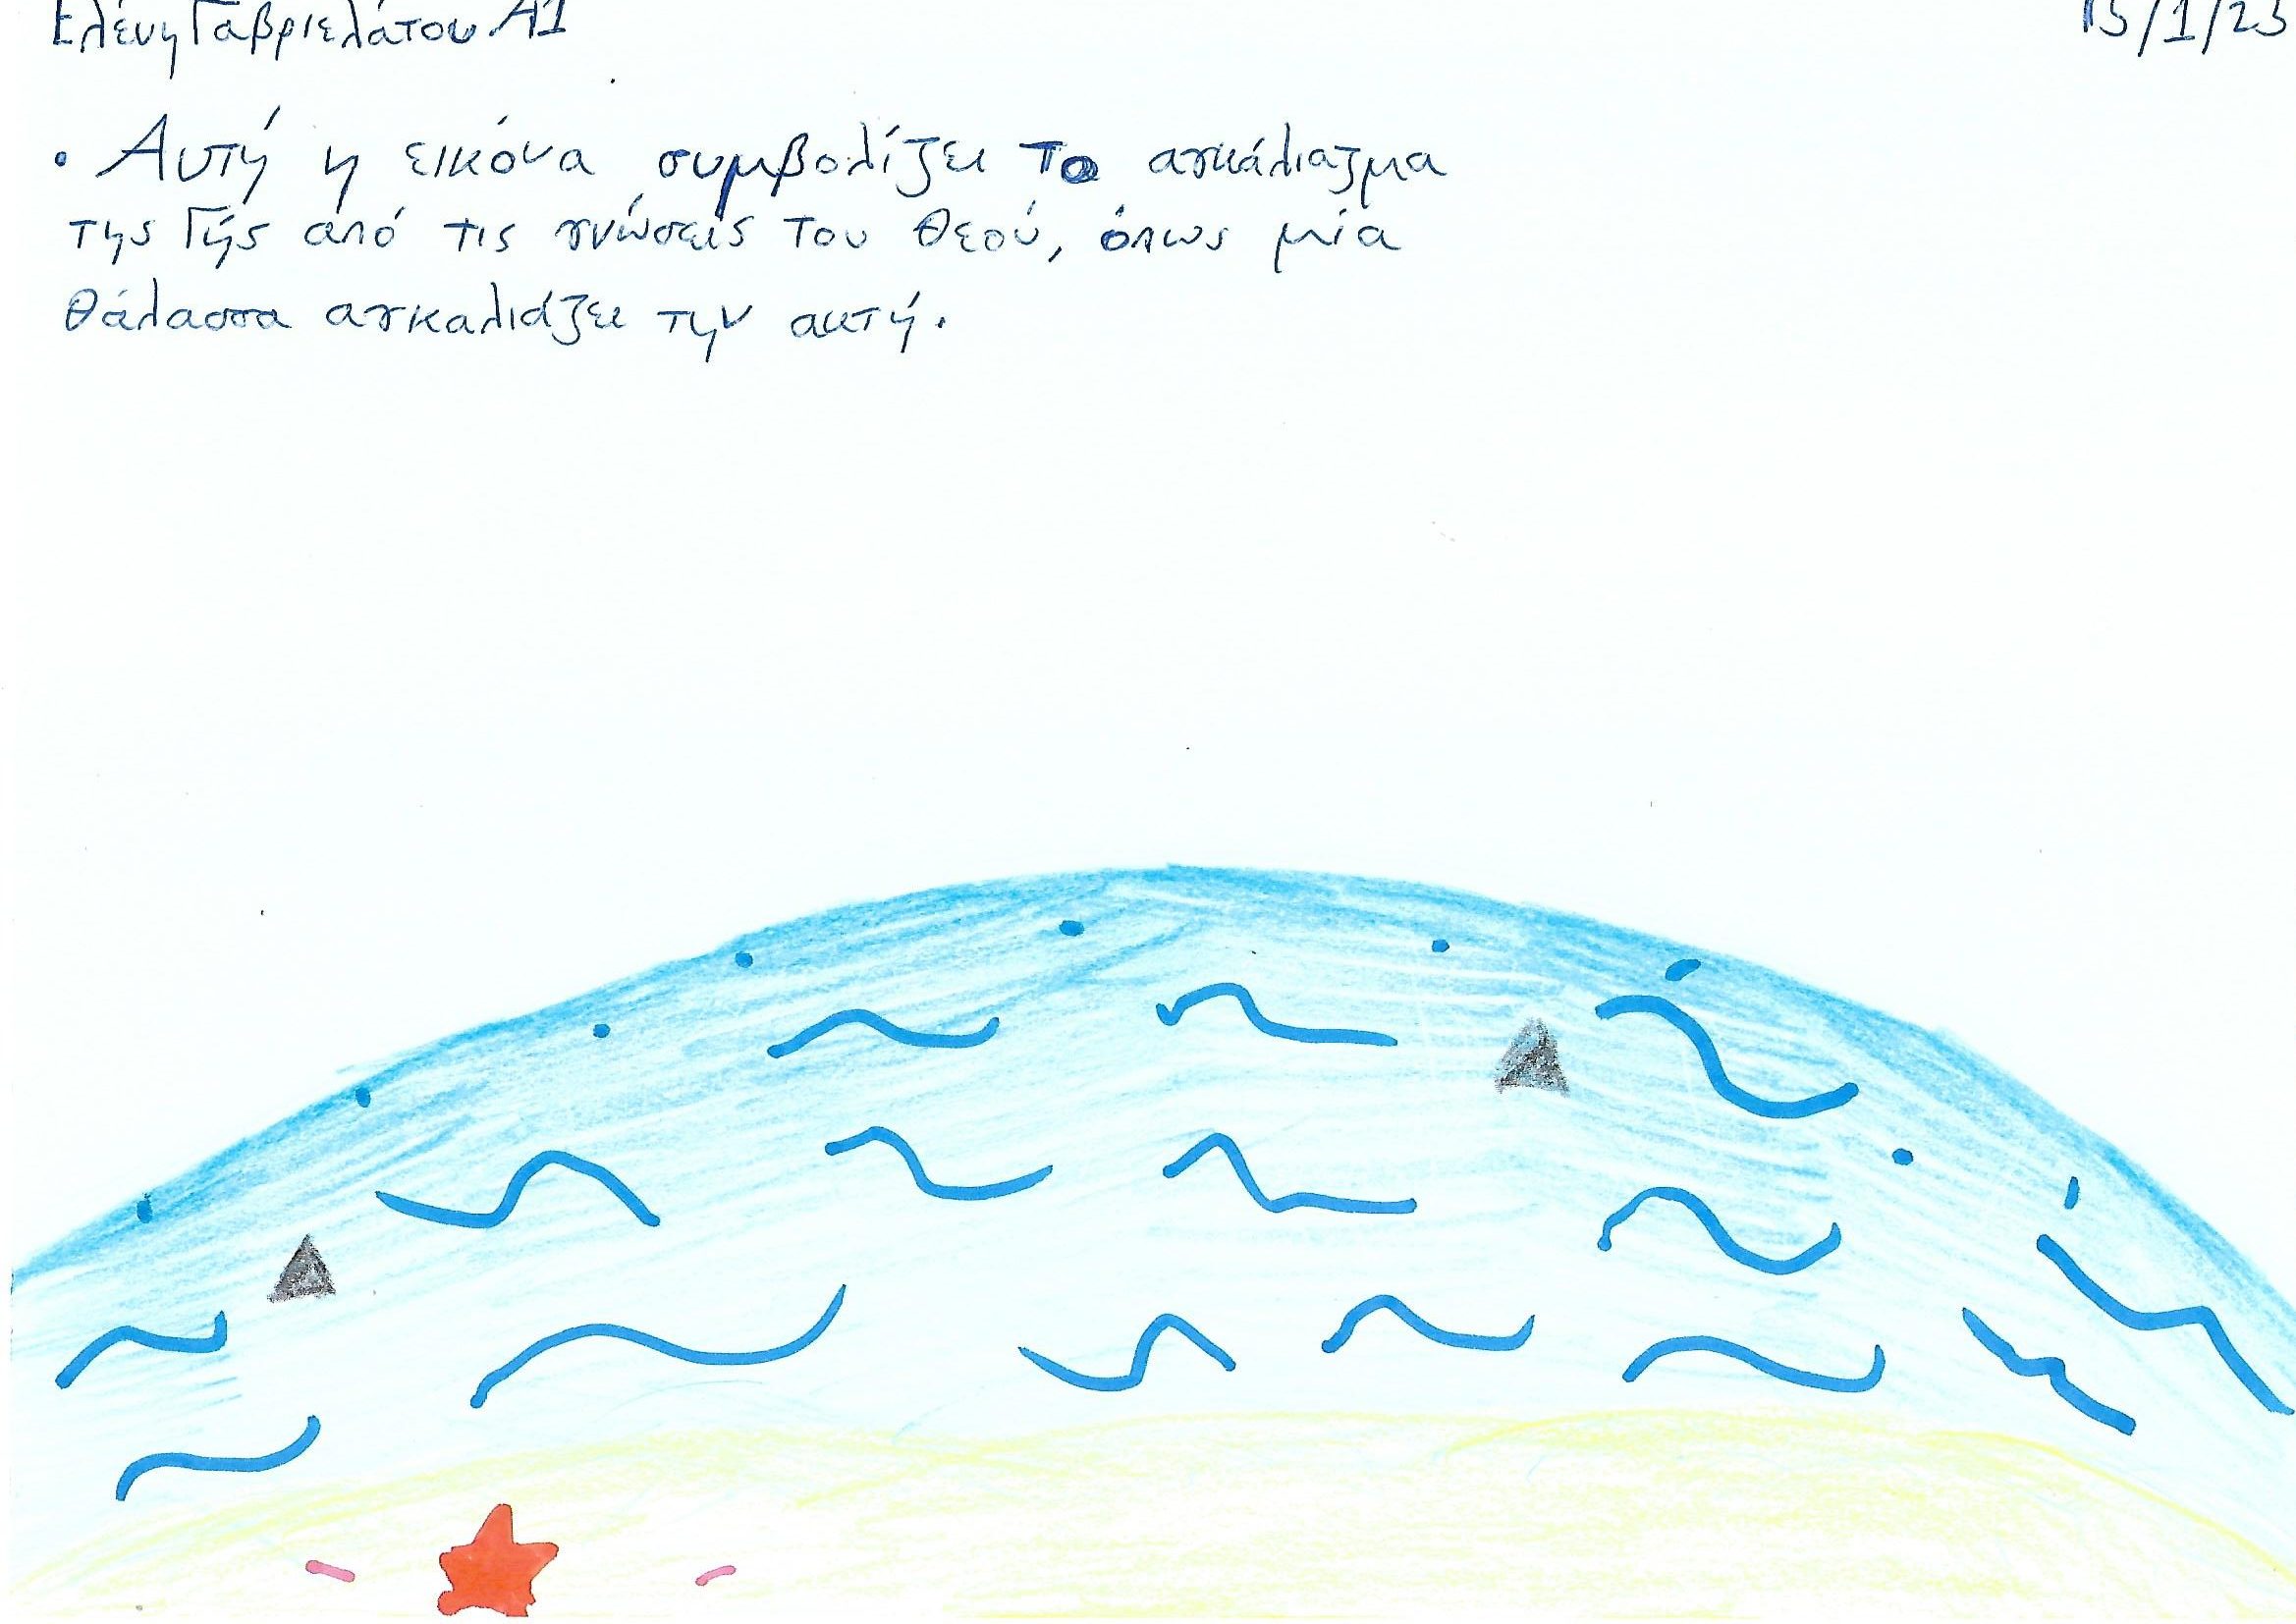 Ελένη Γαβριελάτου Α1
15/1/23
• Αυτή η εικόνα συμβολίζει το αγκάλιαζμα
της Γής από τις γνώσεις του Θεού, όπως μία
θάλασσα αγκαλιάζει την ακτή.